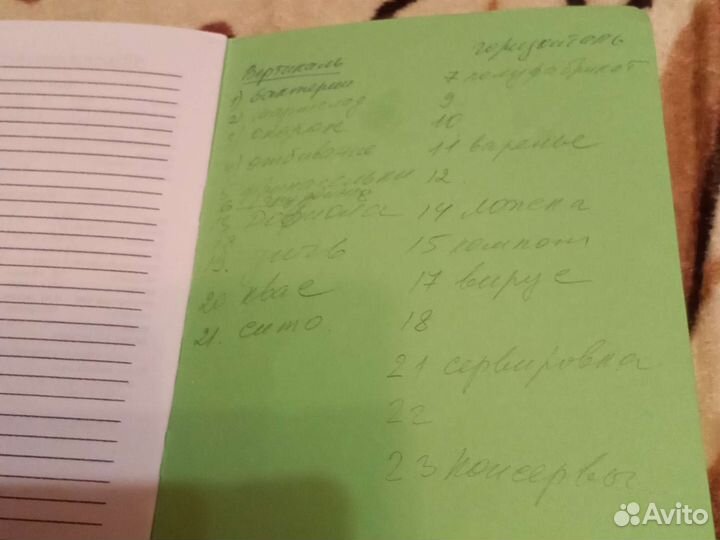 Вертикаль
1) бактерии
2) мармелад
3) окорок
4) отбивание
дичь
20 квас
21. сито.
горизонталь
7 полуфабрикат
9
10
11 варенье
12
14 ложка
15 компот
17 вирус
18
21 сервировка
22
23 Консервы
Avito